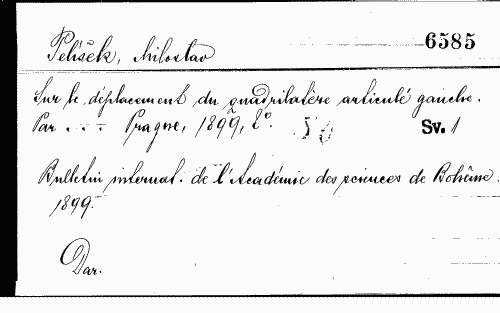 6585
Pelíšek, Miloslav
Sur le déplacement du quadrilatère articulé gauche.
Par . . . Prague, 1899, 8°. Sv. 1
Bulletin internat. de l'Académie des sciences de Bohême.
1899.
Dar.